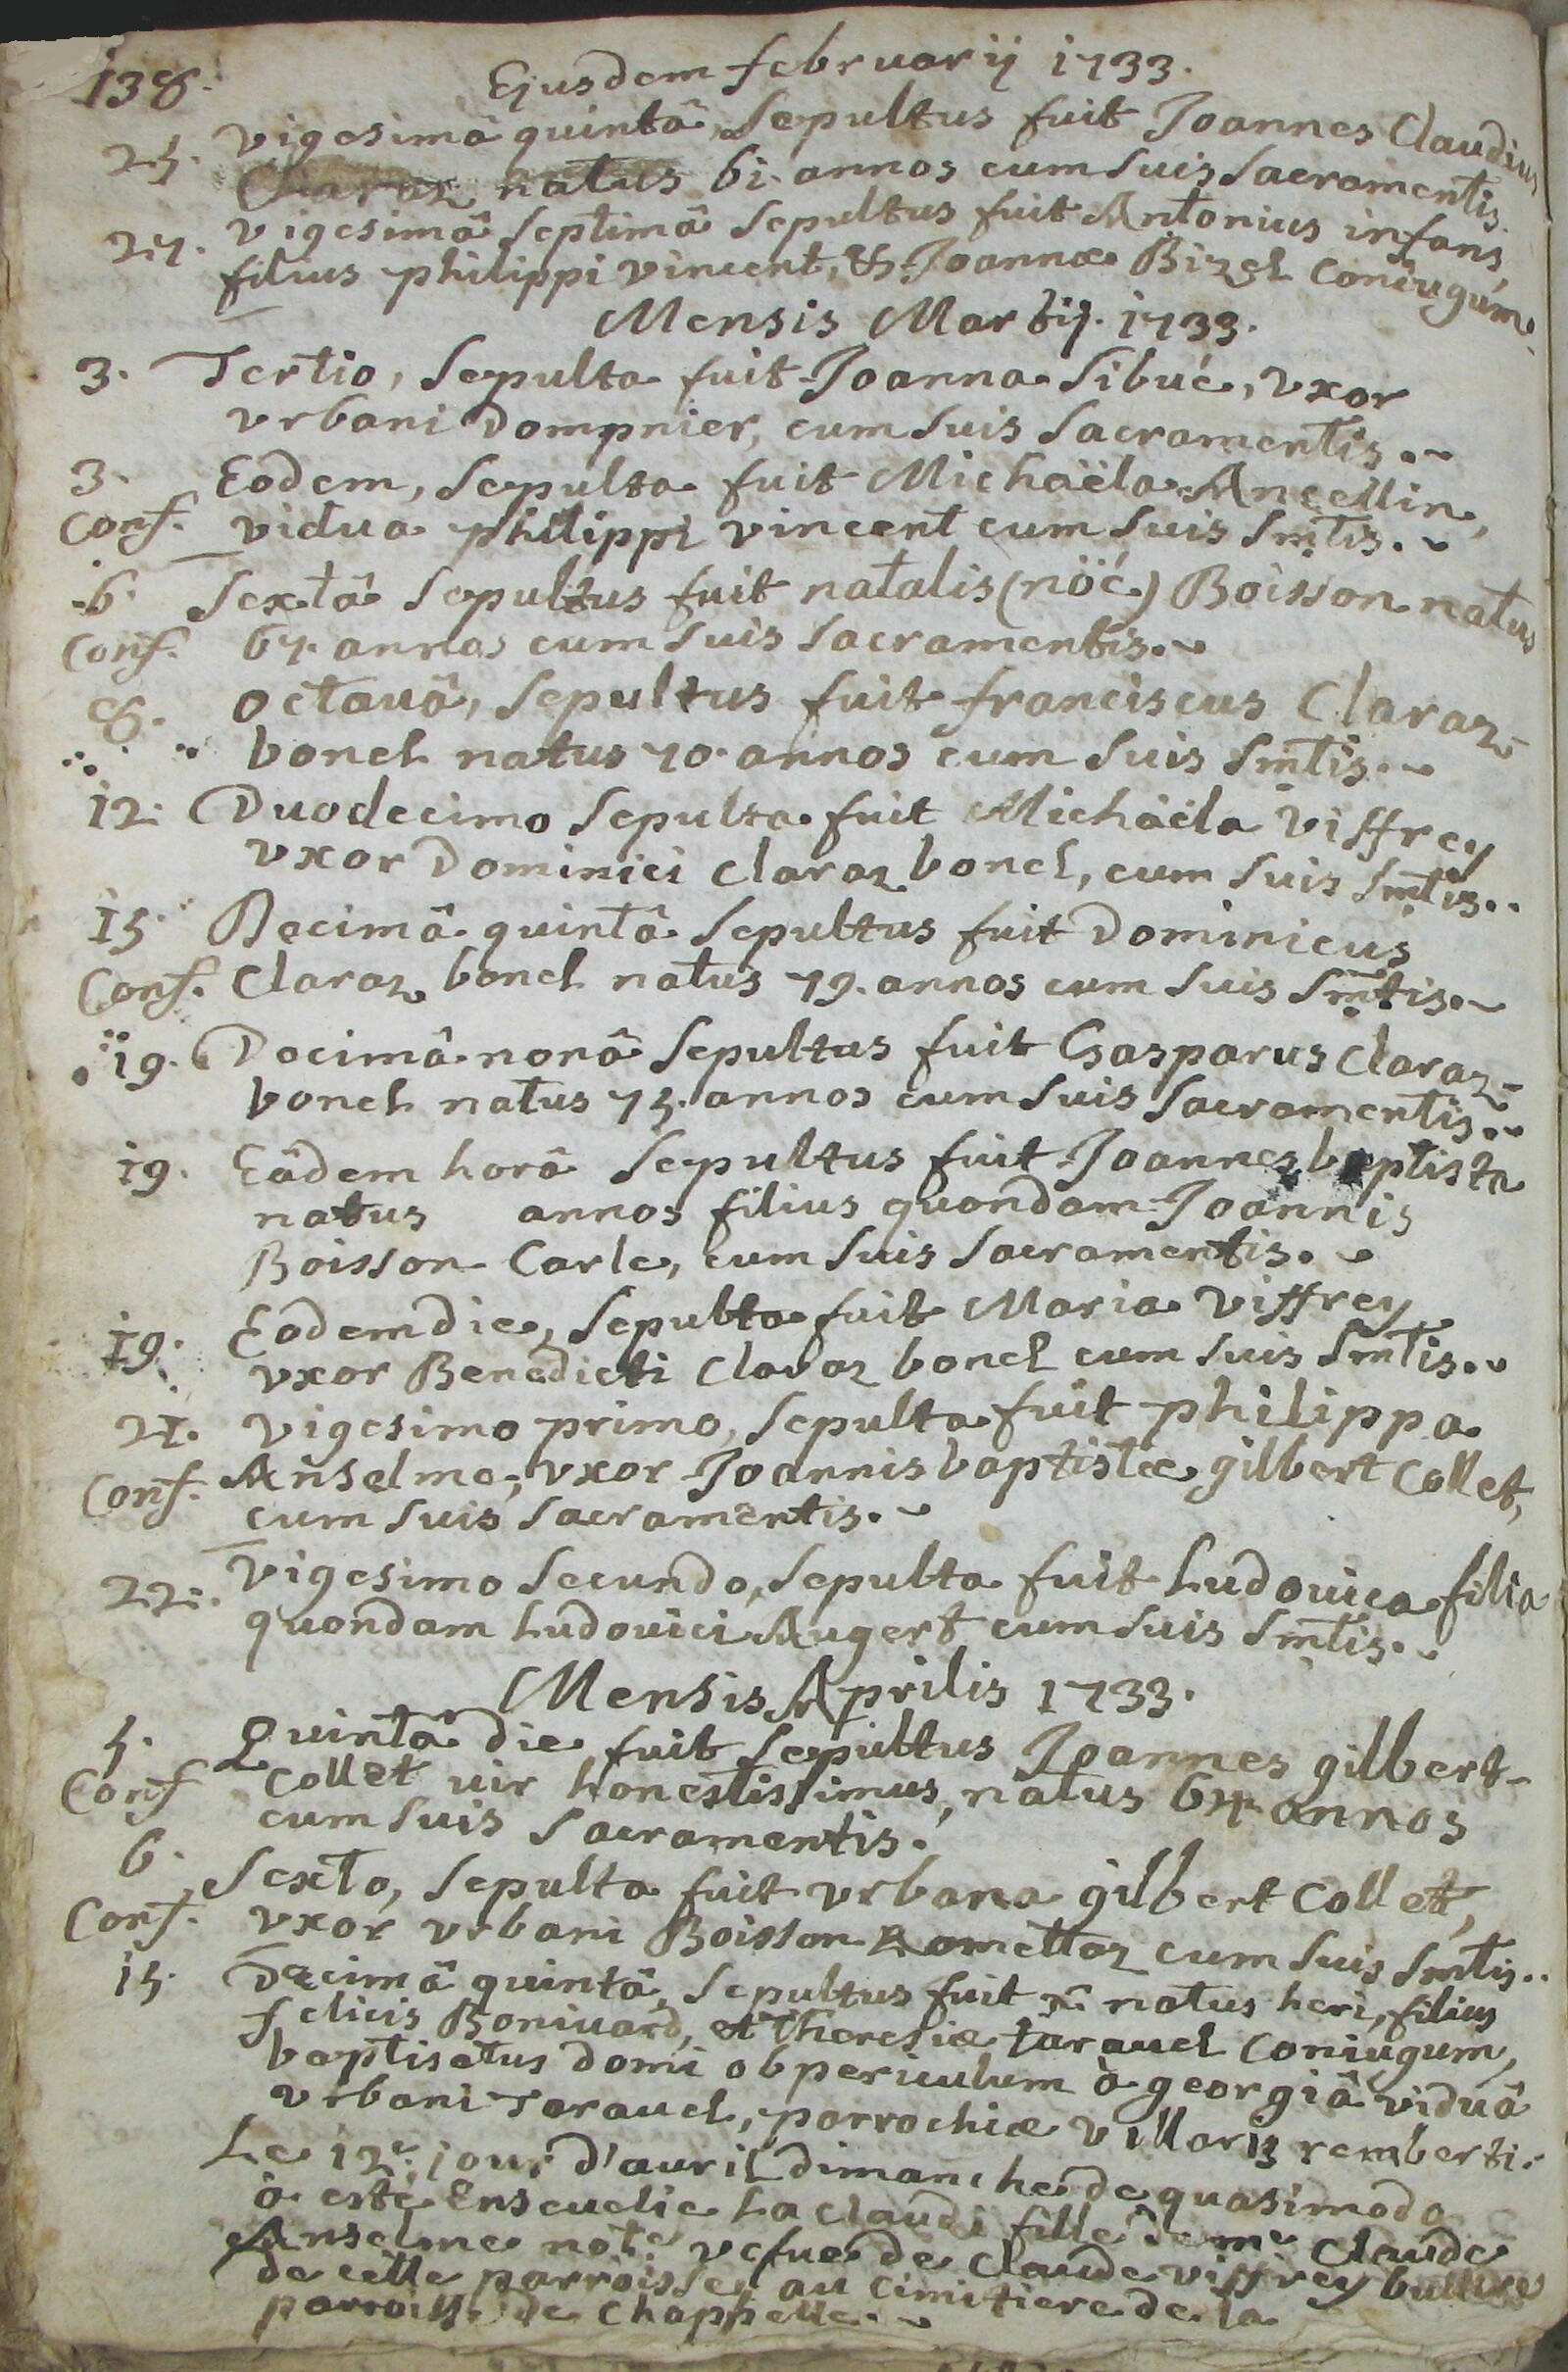 138. Ejusdem februarij 1733.
25. vigesimâ quintâ, Sepultus fuit Joannes Claudius
Claraz natus 61. annos cum suis Sacramentis.
27. vigesimâ Septimâ Sepultus fuit Antonius infans,
filius philippi vincent, & Joannæ Bizel Coniugum.
Mensis Martij. 1733.
3. Tertio, Sepulta fuit Joanna Sibué, vxor
vrbani Dompnier, cum suis Sacramentis.
3. Eodem, Sepulta fuit Michaëla Ancellin,
Conf. vidua philippi vincent cum suis Smtis.
6. Sextâ Sepultus fuit natalis (nöé) Boisson natus
Conf. 67. annos cum suis Sacramentis.
8. octauâ, Sepultus fuit franciscus Claraz-
bonel natus 70. annos cum suis Smtis.
12. Duodecimo Sepulta fuit Michaëla viffrey
vxor Dominici Claraz bonel, cum suis Smtis.
15. Decimâ quintâ Sepultus fuit Dominicus
Conf. Claraz bonel natus 79. annos cum suis Smtis.
19. Decimâ nonâ Sepultus fuit Gasparus Claraz-
bonel natus 75. annos cum suis Sacramentis.
19. Eâdem horâ Sepultus fuit Joannes baptista
natus annos filius quondam Joannis
Boisson Carle, cum suis Sacramentis.
19. Eodem die, Sepulta fuit Maria viffrey
vxor Benedicti Claraz bonel cum suis Smtis.
21. vigesimo primo, Sepulta fuit philippa
Conf. Anselme, vxor Joannis baptistæ gilbert Collet,
cum suis Sacramentis.
22. vigesimo Secundo, Sepulta fuit Ludouica filia
quondam Ludouici Augert cum suis Smtis.
Mensis Aprilis 1733.
5. Quintâ die fuit Sepultus Joannes gilbert-
Conf Collet uir honestissimus, natus annos
cum suis Sacramentis.
6. Sexto, Sepulta fuit vrbana gilbert Collet,
Conf. vxor vrbani Boisson Ramettaz cum suis Smtis.
15. Decimâ quintâ, Sepultus fuit natus heri, filius
felicis Boniuard, et Theresiæ tarauel Coniugum,
baptisatus domi ob periculum à georgiâ viduâ
vrbani Tarauel, parrochiæ villarij remberti.
Le 12e. jour d'auril dimanche de quasimodo
à esté Enseuelie La Claudâ fille de me Claude
Anselme note vefue de Claude viffrey
de cette parroisse, au Cimitiere de la
parroisse de Chappelle.